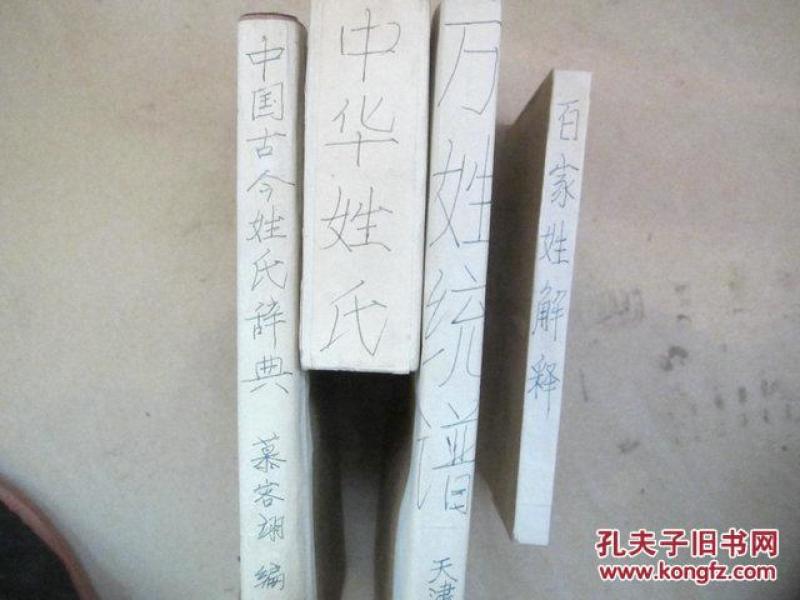 中国古今姓氏辞典 慕容翊 编
中华姓氏
万姓统谱 天津
百家姓解释
孔夫子旧书网
www.kongfz.com